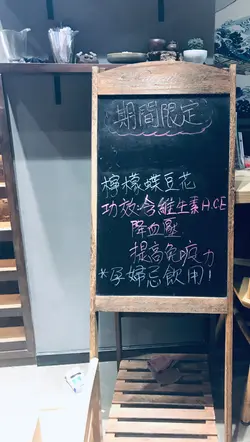 期間限定
檸檬蝶豆花
功效:含維生素A.C.E
降血壓
提高免疫力
*孕婦忌飲用!